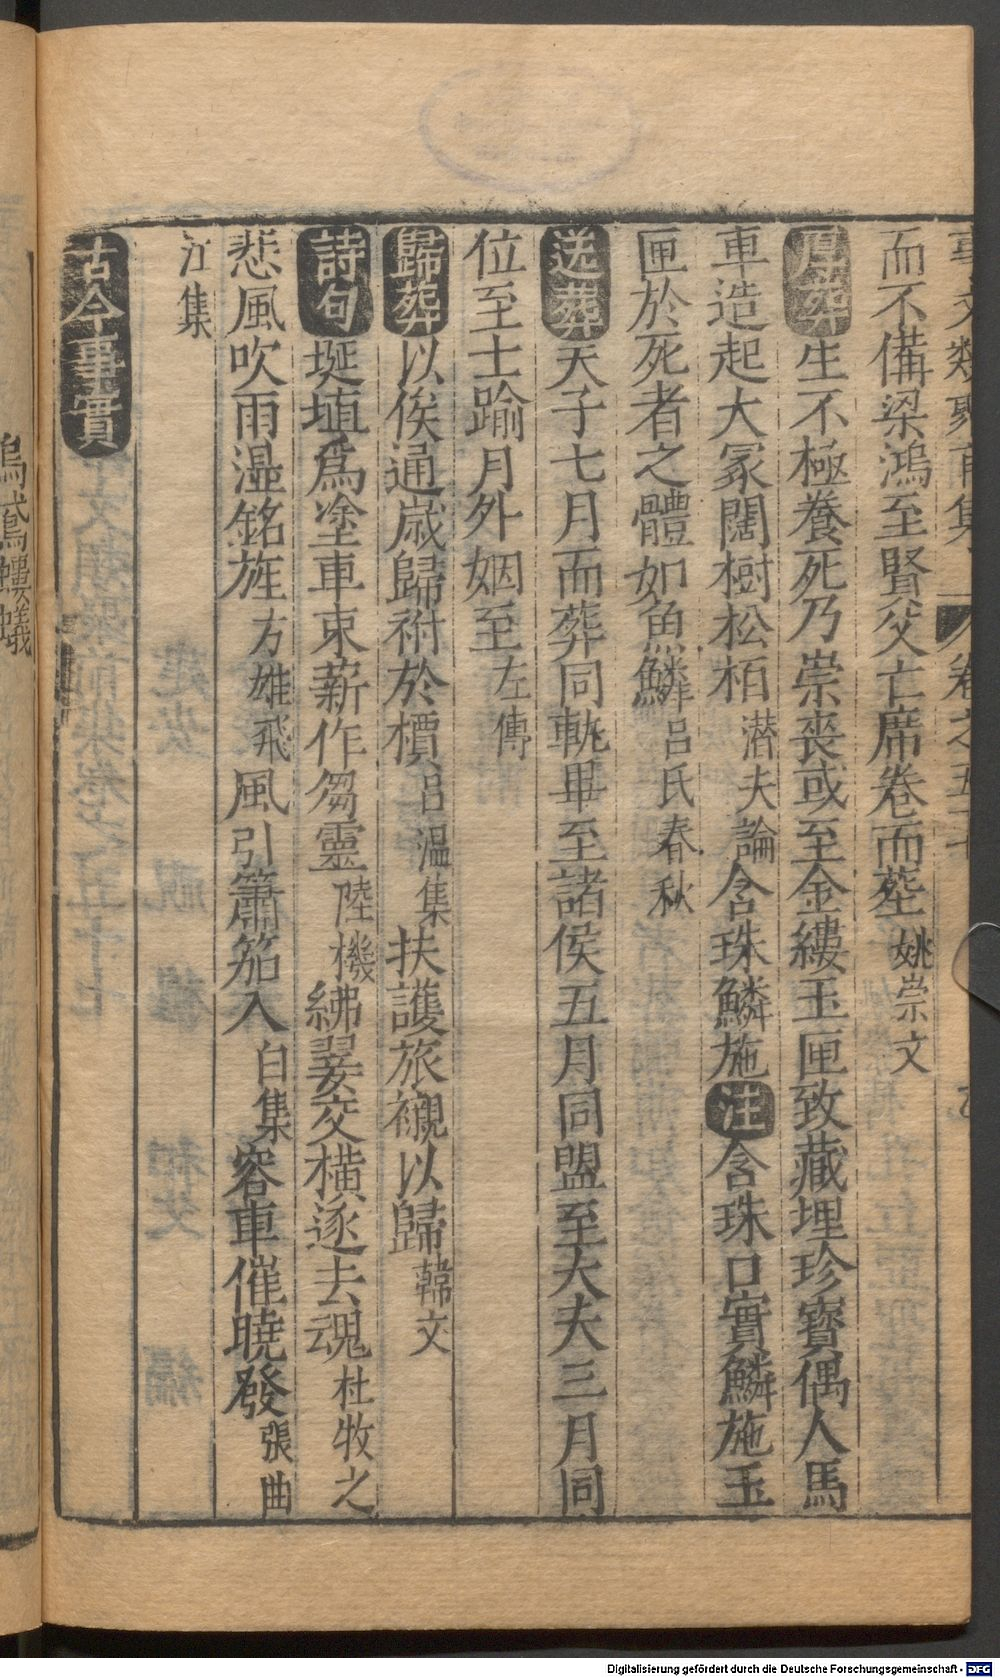 事文類聚前集 卷之五十七
而不備梁鴻至賢父亡席卷而塟姚崇文
厚葬生不極養死乃崇喪或至金縷玉匣致藏埋珍寶偶人馬
車造起大冢闊樹松栢潜夫論含珠鱗施注含珠口實鱗施玉
匣於死者之體如魚鱗呂氏春秋
送葬天子七月而葬同軌畢至諸侯五月同盟至大夫三月同
位至士踰月外姻至左傳
歸葬以俟通歲歸祔於槚呂温集扶護旅櫬以歸韓文
詩句埏埴爲塗車束薪作芻靈陸機紼翣交横逐去魂杜牧之
悲風吹雨濕銘旌方雄飛風引簫笳入白集容車催曉發張曲
江集
古今事實
烏鳶螻蟻
Digitalisierung gefördert durch die Deutsche Forschungsgemeinschaft - DFG